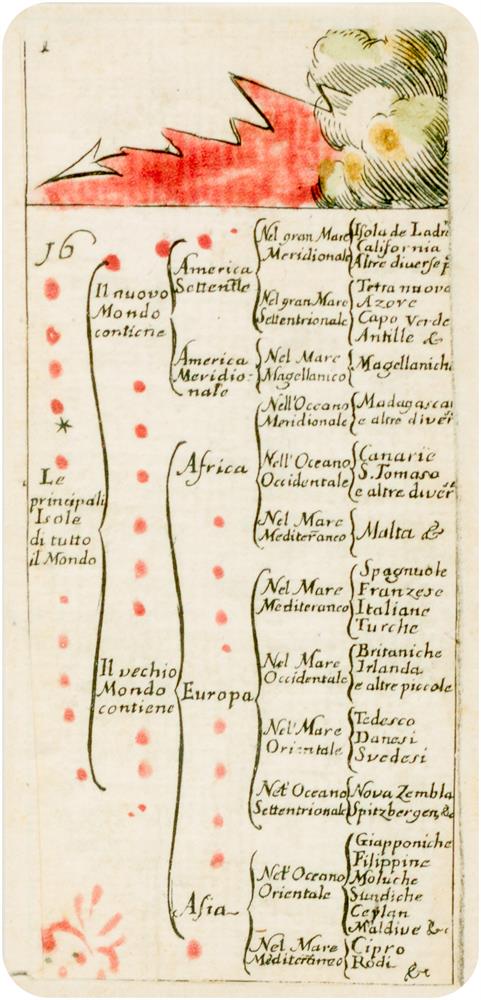 16
Le
principali
Isole
di tutto
il Mondo
Il nuovo
Mondo
contiene
America
Settentle
Nel gran Mare
Meridionale
Isola de Ladr
California
Altre diverse
Nel gran Mare
Settentrionale
Terra nuova
Azore
Capo Verde
Antille &
America
Meridio-
nale
Nel Mare
Magellanico
Magellanich
Il vechio
Mondo
contiene
Africa
Nell'Oceano
Meridionale
Madagascar
e altre diver
Nell'Oceano
Occidentale
Canarie
S. Tomaso
e altre diver
Nel Mare
Mediterraneo
Malta &
Europa
Nel Mare
Mediteraneo
Spagnuole
Franzese
Italiane
Turche
Nel Mare
Occidentale
Britaniche
Irlanda
e altre piccole
Nel Mare
Orientale
Tedesco
Danesi
Svedesi
Nel Oceano
Settentrionale
Nova Zembla
Spitzbergen, &c
Asia
Nel Oceano
Orientale
Giapponiche
Filippine
Moluche
Sundiche
Ceylan
Maldive &c
Nel Mare
Mediterraneo
Cipro
Rodi
&c